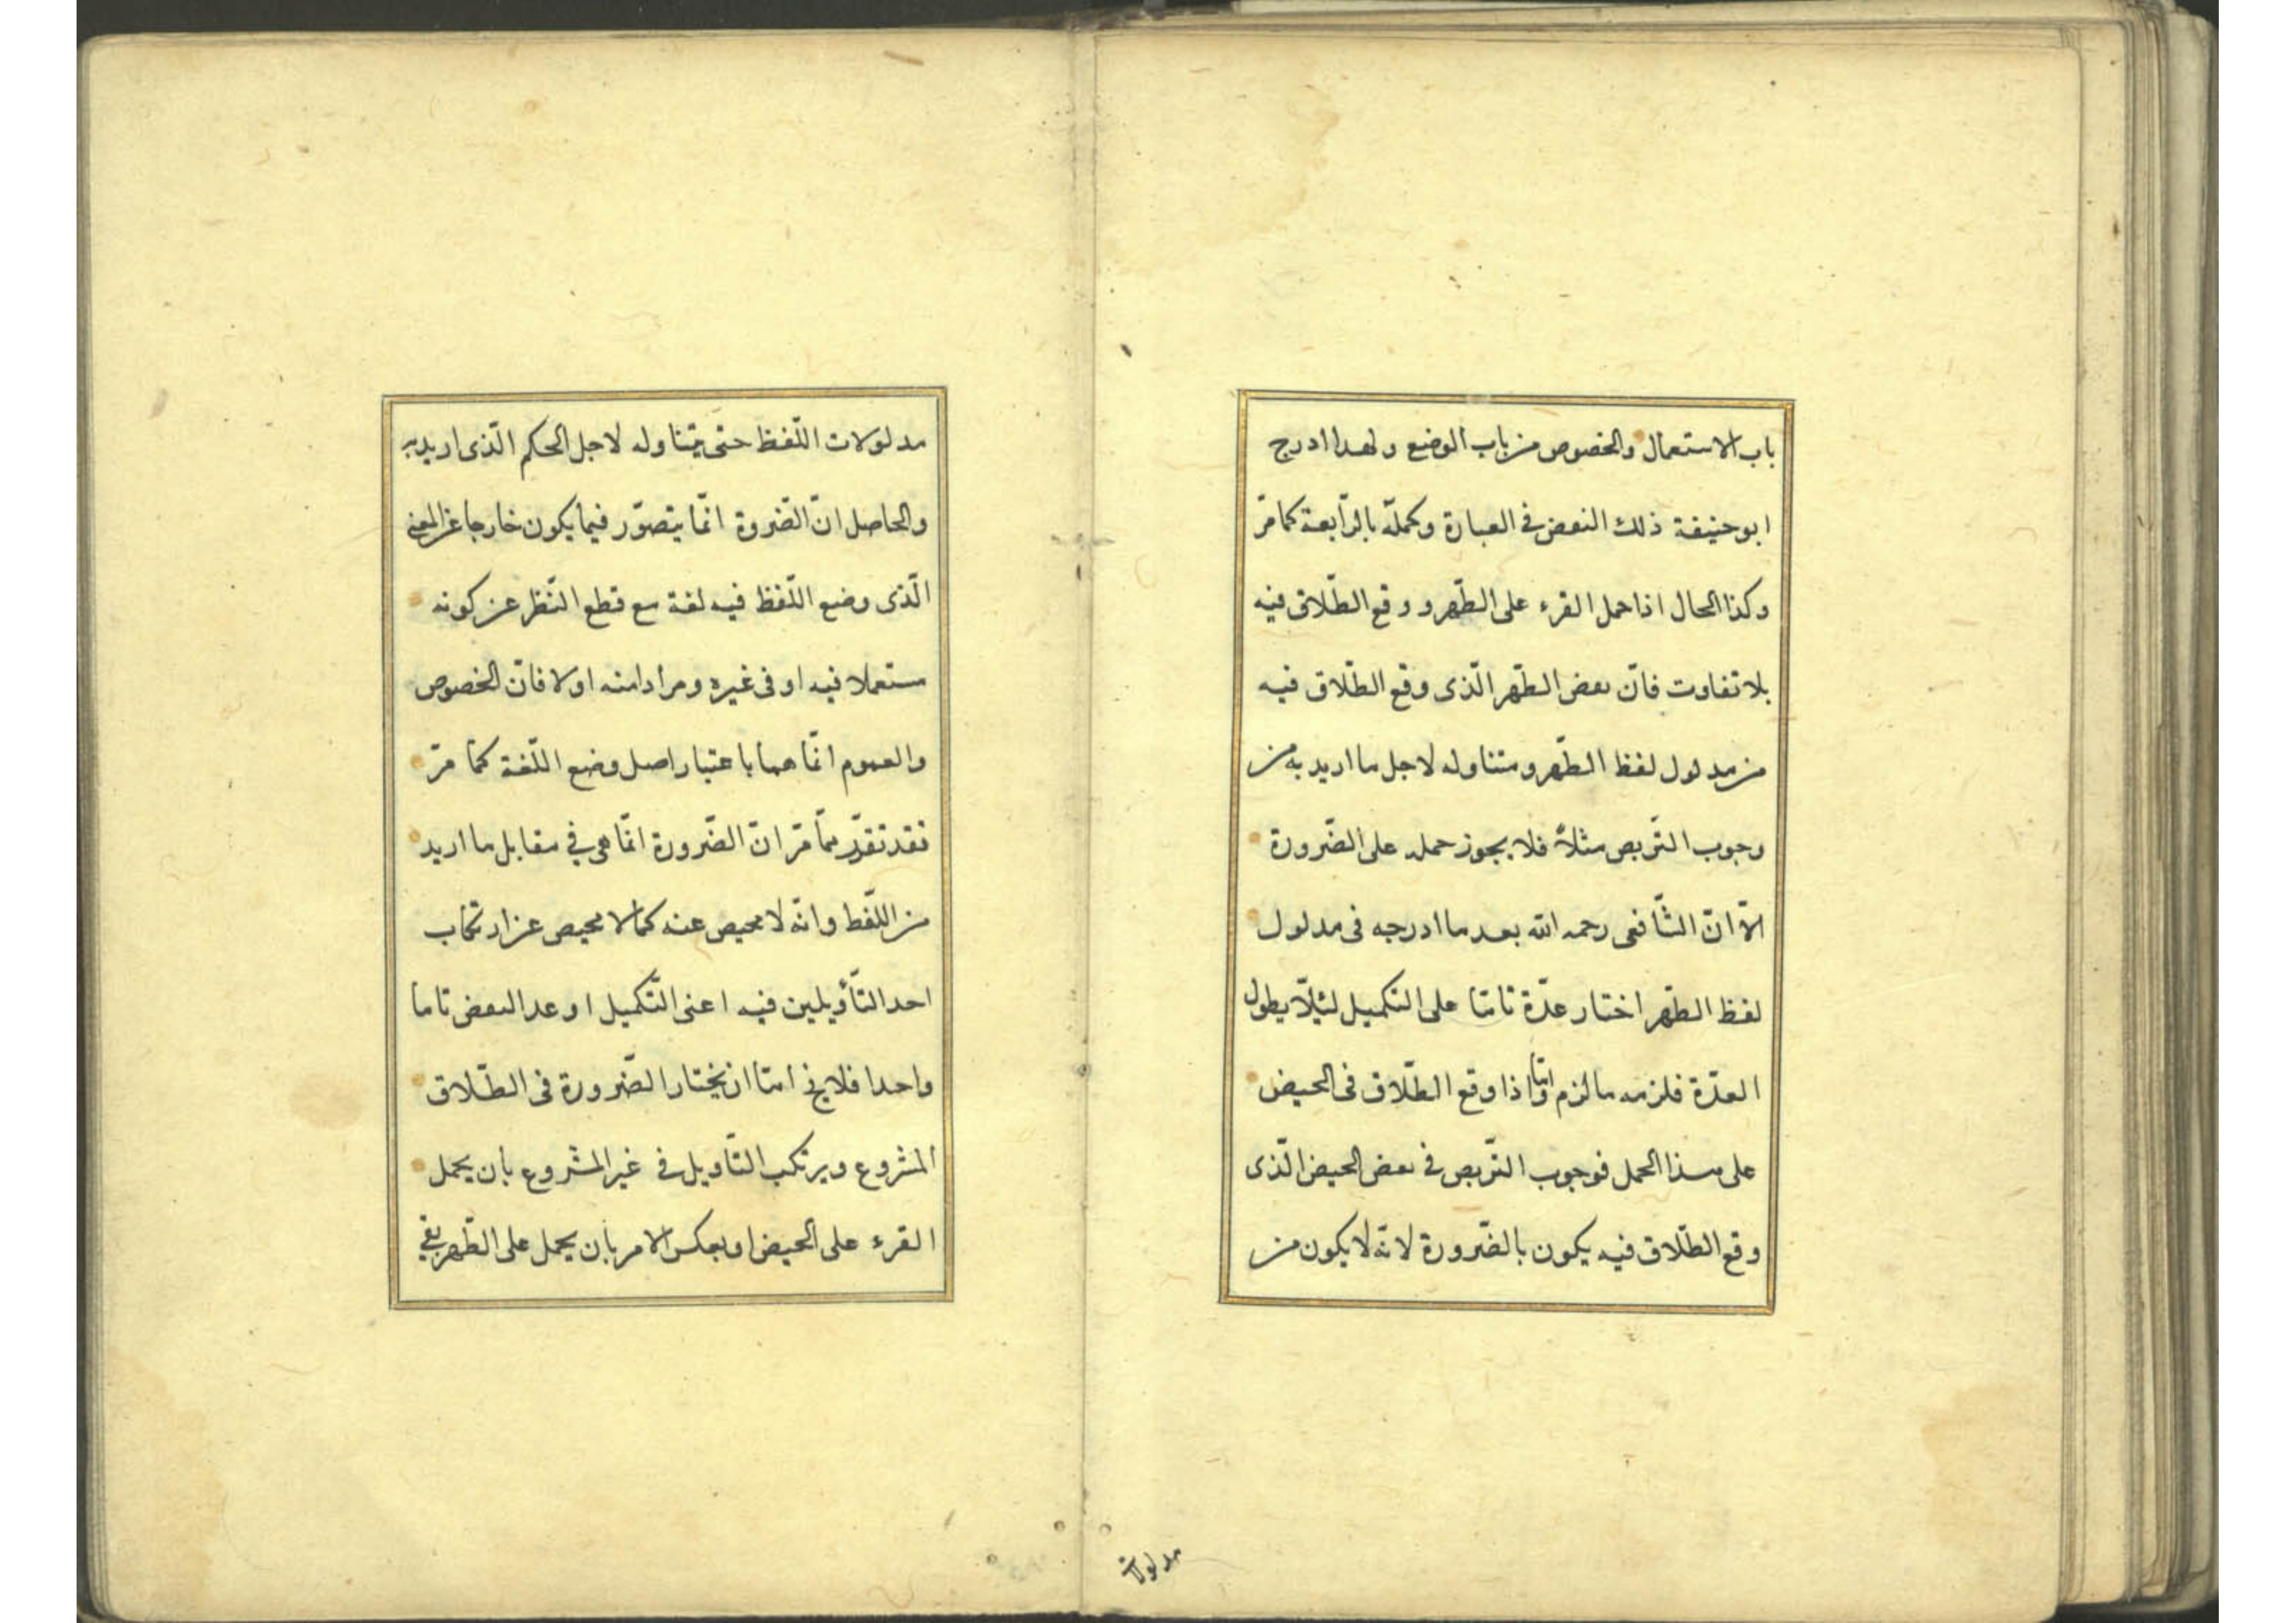 باب الاستعمال والخصوص من باب الوضع ولهذا ادرج
ابو حنيفة ذلك البعض فى العبارة وكمله بالرّابعة كما مرّ
وكذا الحال اذا حمل القرء على الطّهر و وقع الطّلاق فيه
بلا تفاوت فانّ بعض الطّهر الّذى وقع الطّلاق فيه
من مدلول لفظ الطّهر ومتناوله لاجل ما اريد به من
وجوب التّربص مثلاً فلا يجوز حمله على الضّرورة
الّا انّ الشّافعى رحمه الله بعد ما ادرجه فى مدلول
لفظ الطّهر اختار عدّة تامّا على التكميل لئلّا يطول
العدّة فلزمه ما لزم وامّا اذا وقع الطّلاق فى الحيض
على هذا الحمل فوجوب التّربص فى بعض الحيض الّذى
وقع الطّلاق فيه يكون بالضّرورة لانّه لا يكون من
مدلولات
مدلولات اللّفظ حتى يتناوله لاجل الحكم الّذى اريد به
والحاصل انّ الضّرورة انّما يتصوّر فيما يكون خارجا عن المعنى
الّذى وضع اللّفظ فيه لغة مع قطع النّظر عن كونه
مستعملا فيه او فى غيره ومرادا منه اولا فانّ الخصوص
والعموم انّما هما باعتبار اصل وضع اللّغة كما مرّ
فقد تقرّر ممّا مرّ انّ الضّرورة انّما هى فى مقابل ما اريد
من اللّفظ وانّه لا محيص عنه كما لا محيص عن ارتكاب
احد التّأويلين فيه اعنى التّكميل او عد البعض تاما
واحدا فلا يخ امّا ان يختار الضّرورة فى الطّلاق
المشروع ويرتكب التّاويل فى غير المشروع بان يحمل
القرء على الحيض او يعكس الامر بان يحمل على الطّهر بقى